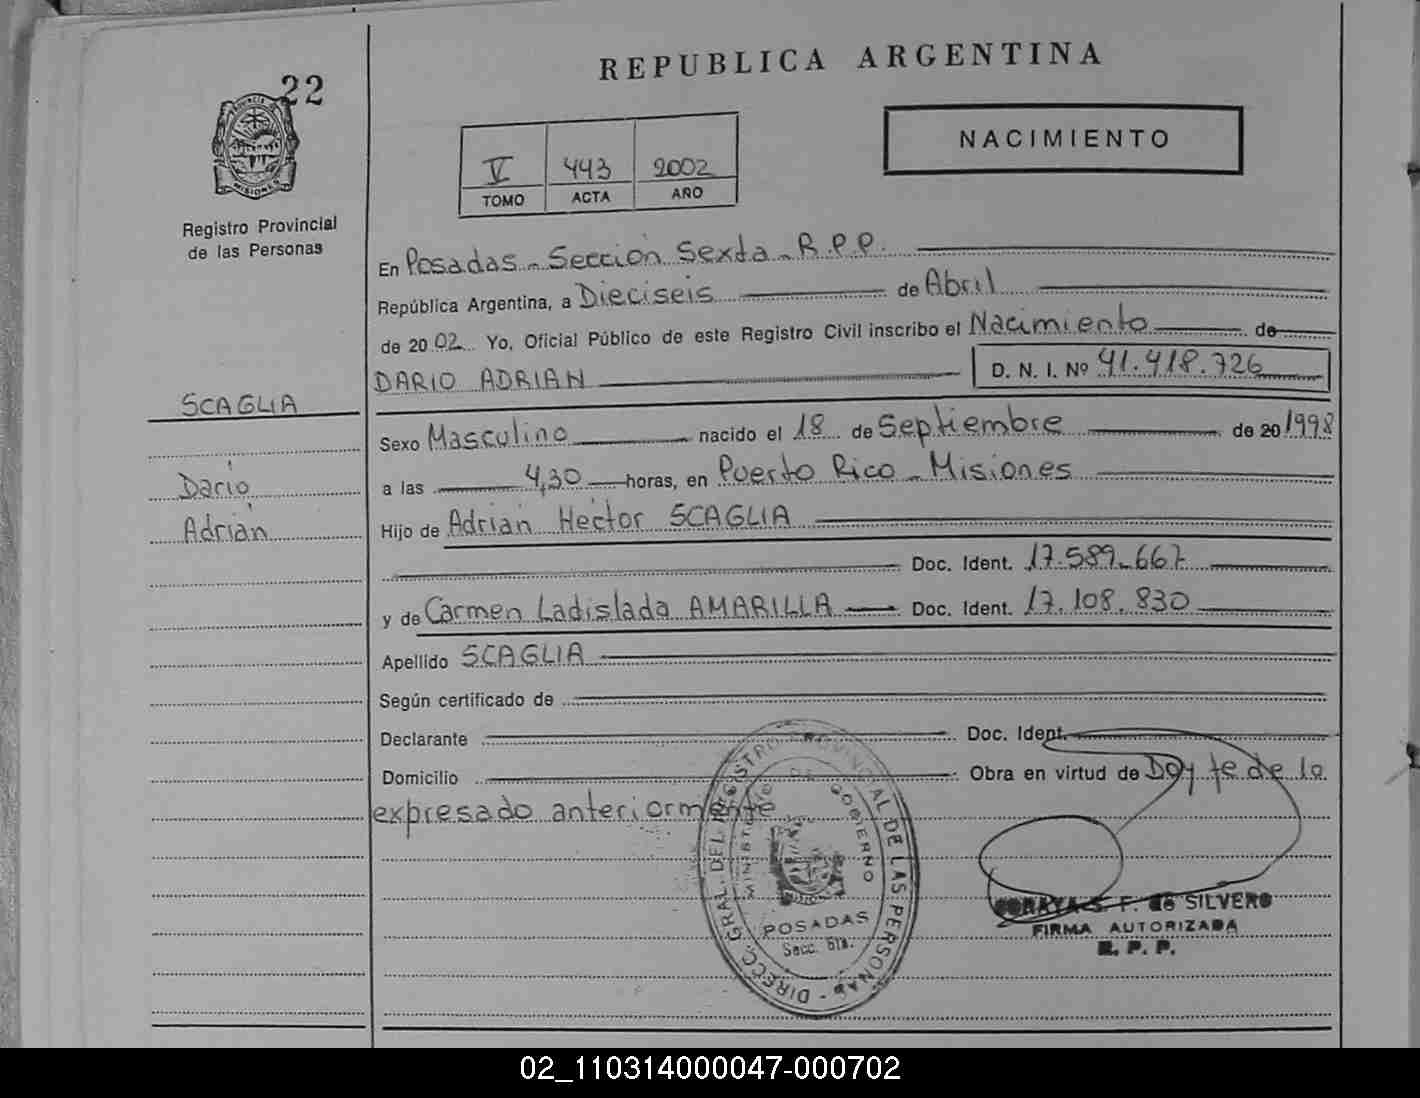 22
PROVINCIA DE
MISIONES
Registro Provincial
de las Personas
SCAGLIA
Dario
Adrián
REPUBLICA ARGENTINA
NACIMIENTO
V 443 2002
TOMO ACTA AÑO
En Posadas - Sección Sexta - R.P.P.
República Argentina, a Dieciseis de Abril
de 2002 Yo, Oficial Público de este Registro Civil inscribo el Nacimiento de
DARIO ADRIAN D. N. I. Nº 41.418.726
Sexo Masculino nacido el 18 de Septiembre de 20 1998
a las 4,30 horas, en Puerto Rico - Misiones
Hijo de Adrian Hector SCAGLIA
Doc. Ident. 17.589.667
y de Carmen Ladislada AMARILLA Doc. Ident. 17.108.830
Apellido SCAGLIA
Según certificado de
Declarante Doc. Ident.
Domicilio Obra en virtud de Doy fe de lo
expresado anteriormente
DIRECC. GRAL. DEL REGISTRO PROVINCIAL DE LAS PERSONAS
MINISTERIO DE GOBIERNO
POSADAS
Secc. 6ta.
SORAYA S. F. de SILVERO
FIRMA AUTORIZADA
R. P. P.
02_110314000047-000702